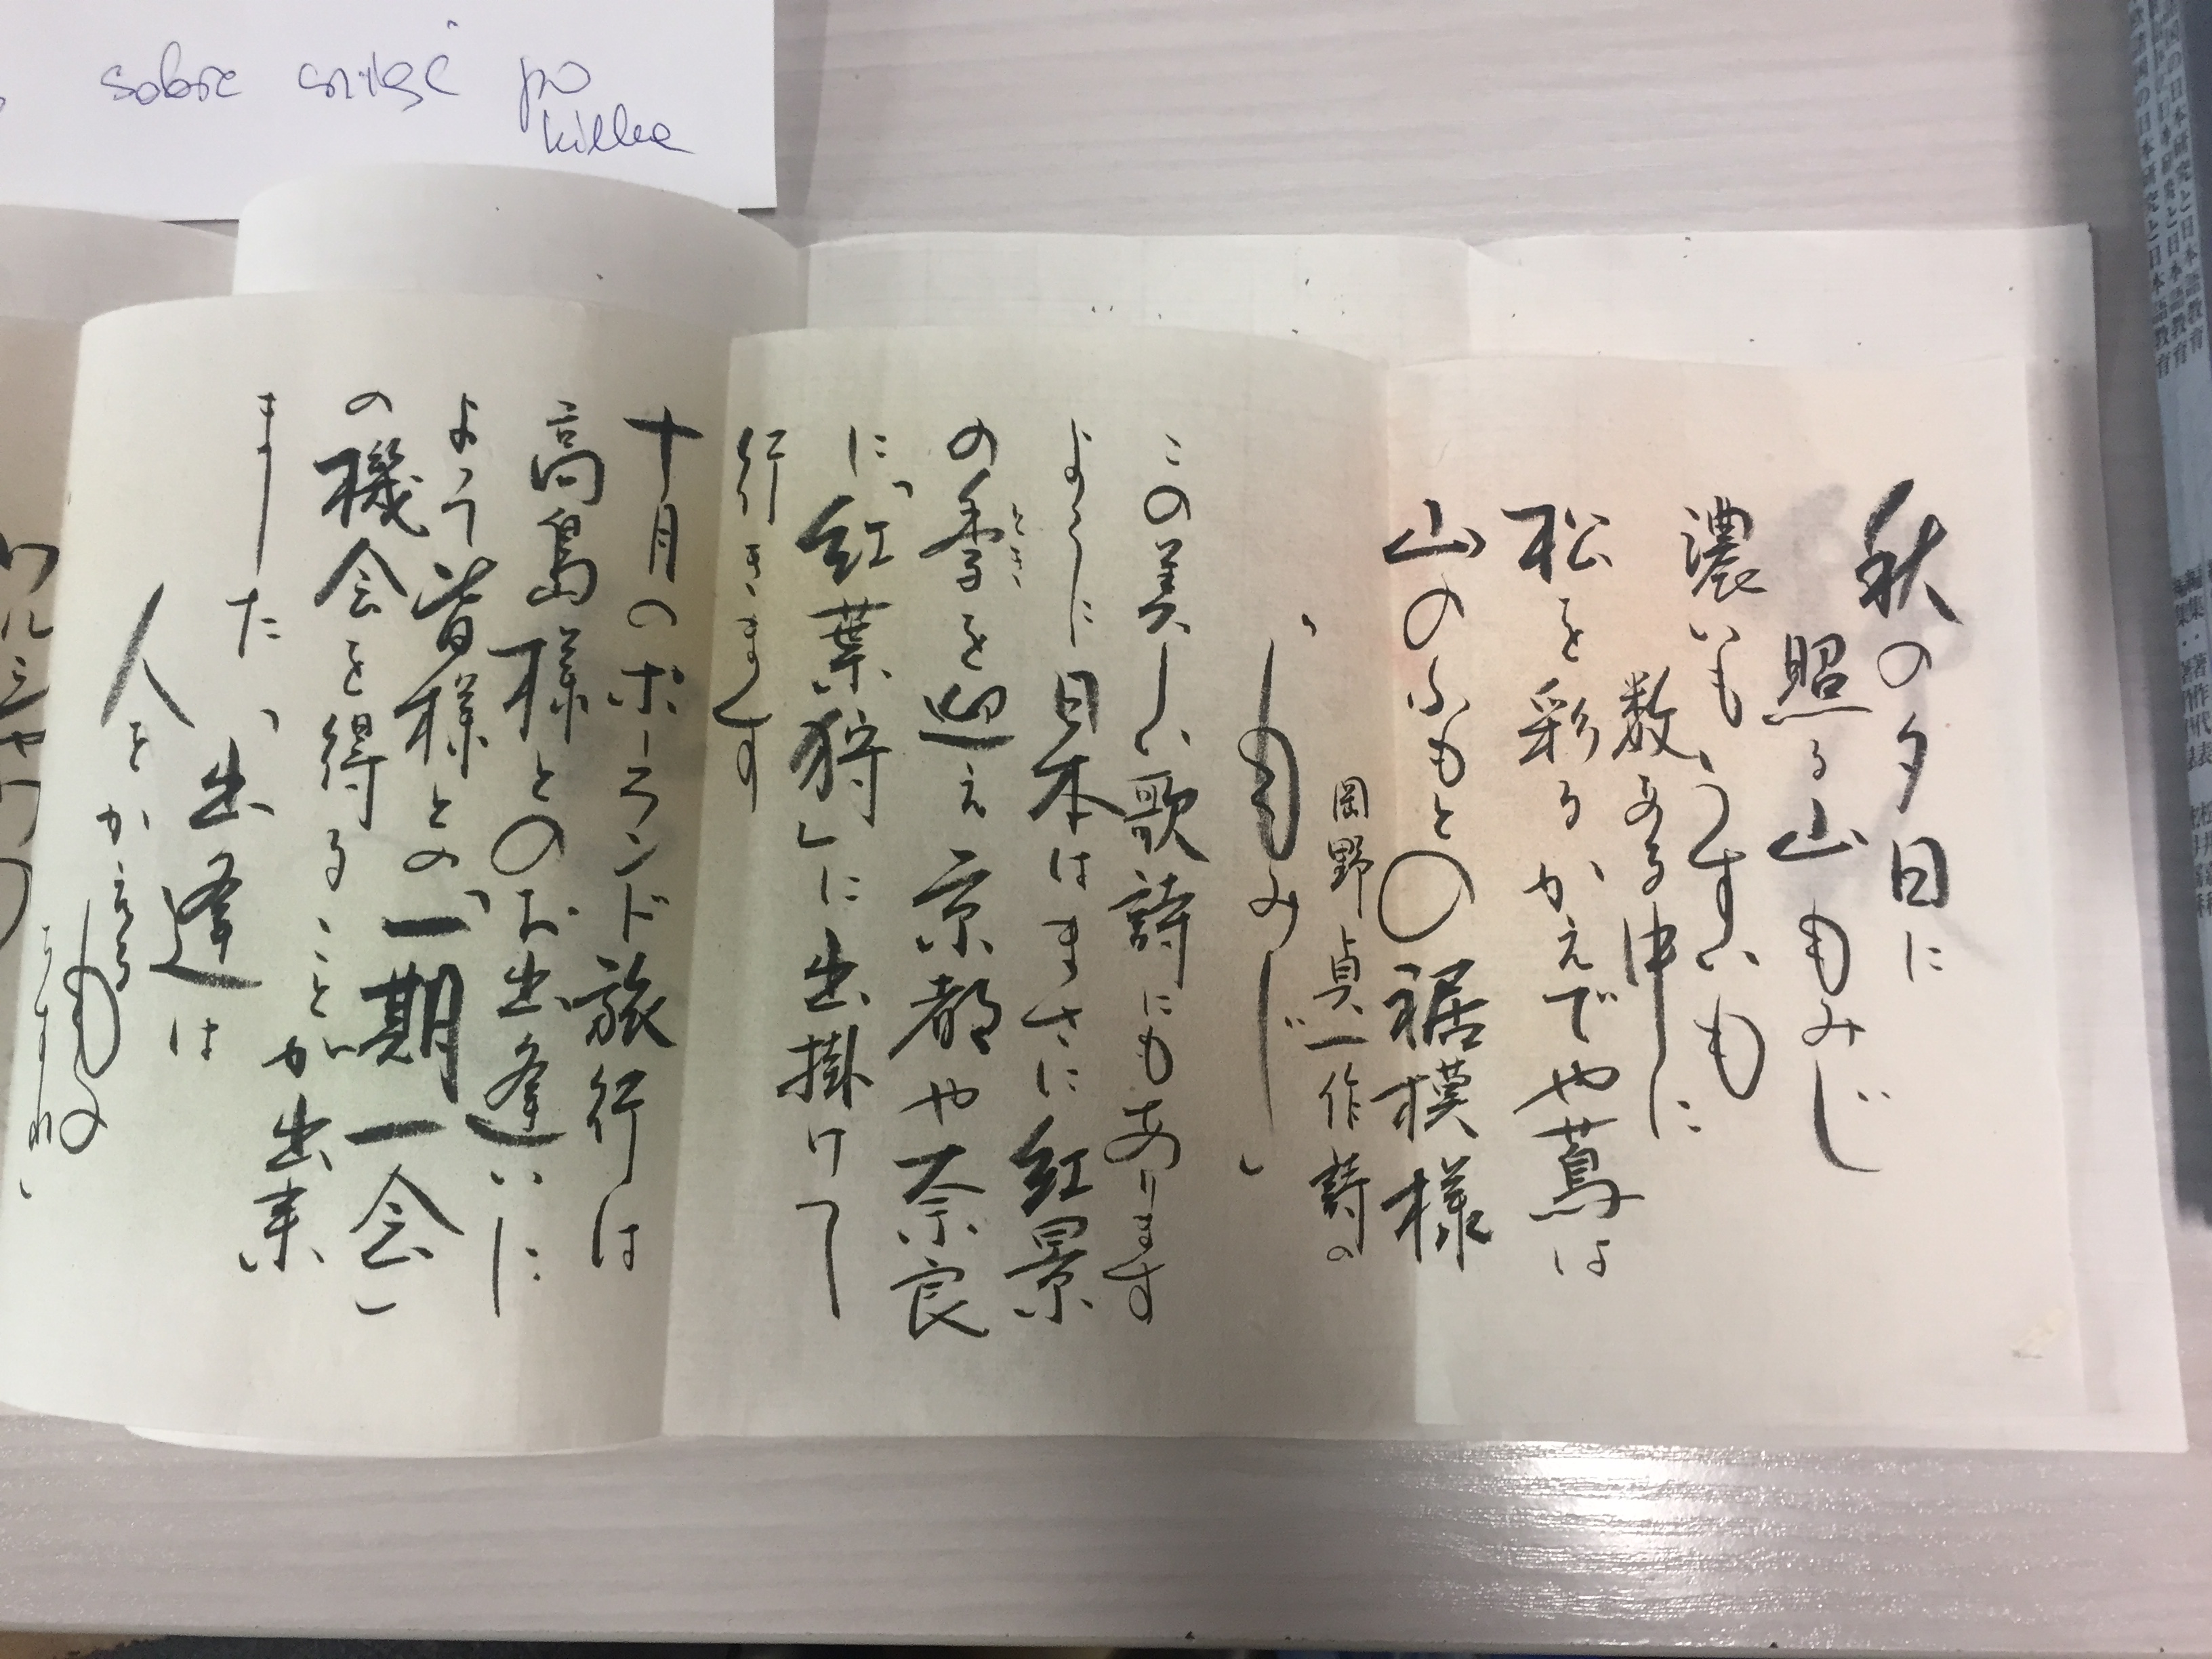 秋の夕日に
照る山もみじ
濃いもうすいも
数ある中に
松を彩るかえでや蔦は
山のふもとの裾模様
岡野貞一作詩の
「もみじ」
この美しい歌詩にもあります
ように日本はまさに紅景
の季を迎え京都や奈良
とき
に「紅葉狩」に出掛けて
行きます
十月のポーランド旅行は
高島様とのお出逢いに
よう皆様との「一期一会」
の機会を得ることが出来
ました、出逢は
人をかえる
ワルシャワの
sobie
po